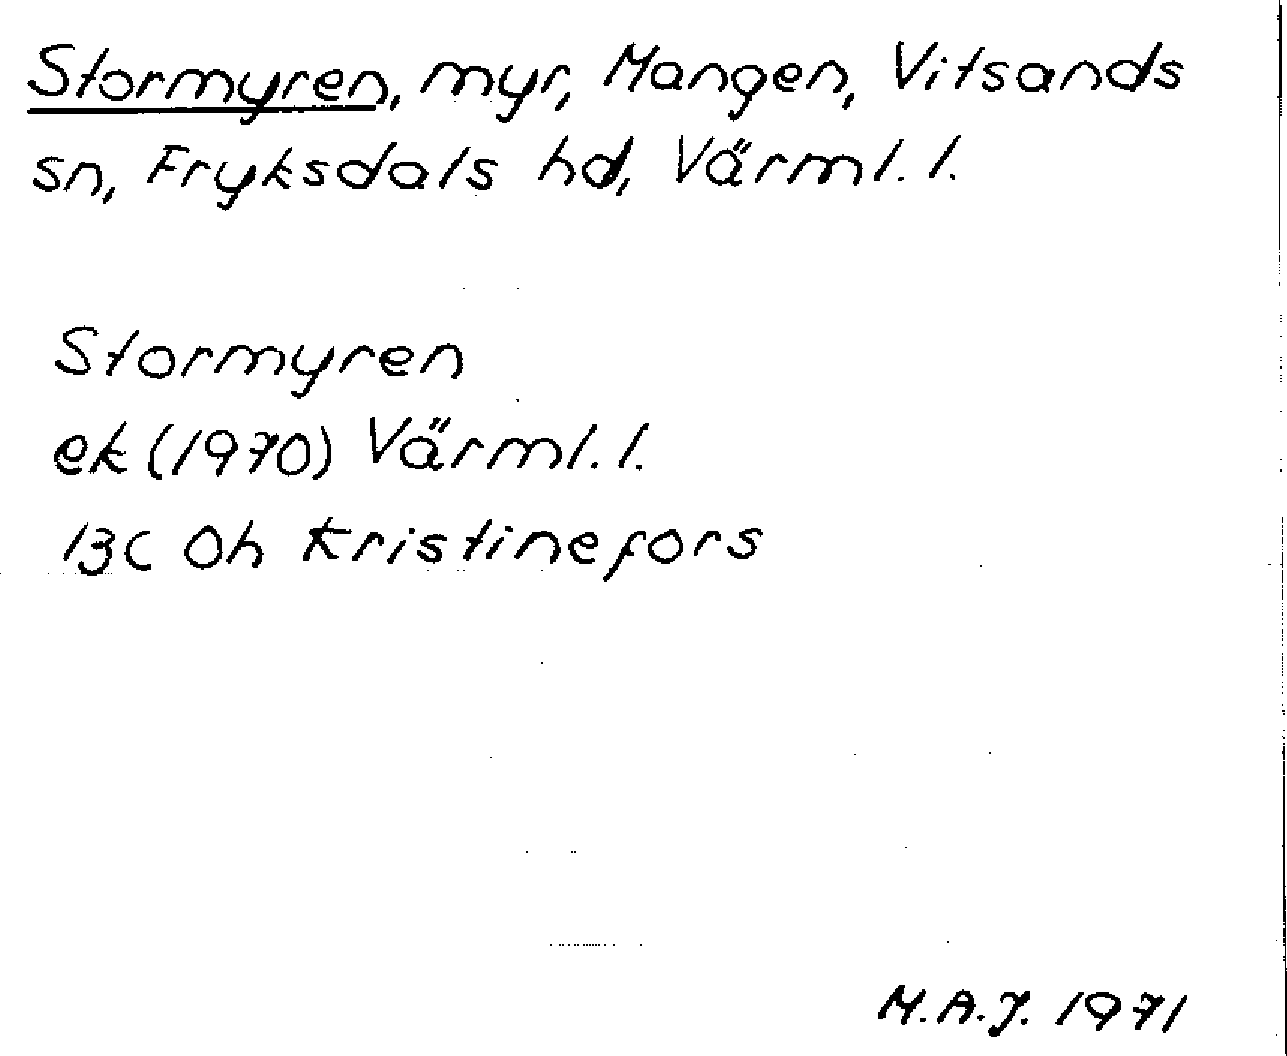 Stormyren, myr, Mangen, Vitsands
sn, Fryksdals hd, Värml. l.
Stormyren
ek (1970) Värml. l.
13C 0h Kristinefors
M.A.J. 1971